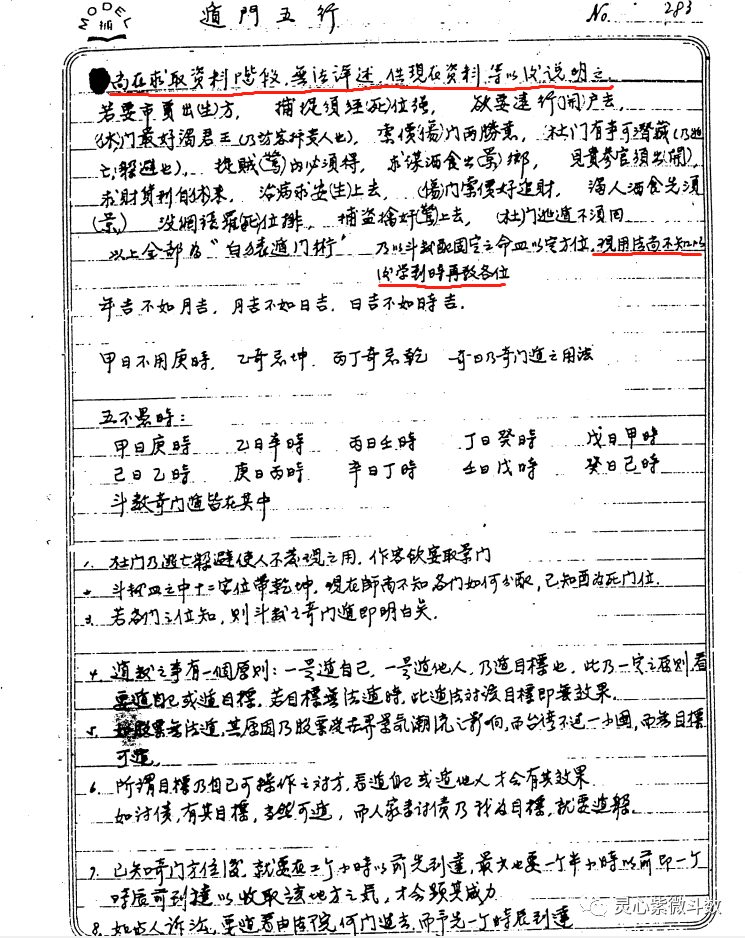 MODEL
遁門五行
No. 283
尚在求取資料階段,無法詳述,僅現在資料,等以后說明之.
若要市賈出(生)方, 捕捉須經(死)位强, 欲要遠行(開)戶去,
(休)门最好謁君王(乃訪客行贵人也), 索債(傷)门两勝意, 杜门有事可潜藏(乃逃
亡躲避也), 捉賊(驚)门必須得, 求谋酒食出(景)鄉, 見貴參官須出(開),
求財貨利自休来, 治病求安(生)上去, (傷)门索債好追財, 謁人酒食先須
(景), 死位排, 捕盜擒奸(驚)上去, (杜)门逃遁不須回
以上全部為"白猿遁门術" 乃以斗數配固定之命皿以定方位,現用法尚不知以
后学到時再敎各位
年吉不如月吉,月吉不如日吉,日吉不如時吉.
甲日不用庚時, 乙奇忌坤, 丙丁奇忌乾 奇日乃奇门遁之用法
五不遇時:
甲日庚時 乙日辛時 丙日壬時 丁日癸時 戊日甲時
己日乙時 庚日丙時 辛日丁時 壬日戊時 癸日己時
斗數奇门遁皆在其中
1. 杜门乃逃亡躲避使人不發現之用,作客飲宴取景门
2. 斗數皿之中十二宮位帶乾坤,現在師尚不知各门如何分配,已知酉为死门位.
3. 若各门之位知,則斗數之奇门遁即明白矣.
4. 遁數之事有一個原則:一是遁自己,一是遁他人,乃遁目標也,此乃一定之原則,看
要遁自己或遁目標,若目標無法遁時,此遁法对該目標即無效果.
5. 如股票無法遁,其原因乃股票受世界景氣潮流之影响,而台湾不过一小國,而無目標
可遁.
6. 所謂目標乃自己可操作之对方,看遁自己或遁他人才会有其效果
如討債,有其目標,当然可遁,而人家要討債乃我為目標,就要遁躲.
7. 已知奇门方位後,就要在二个小時以前先到達,最大也要一个半小時以前即一个
時辰前到達以收取該地方之氣,才会顯其威力
8. 如与人訴訟,要遁看由法院何门進去,而早先一个時辰到達
灵心紫微斗数